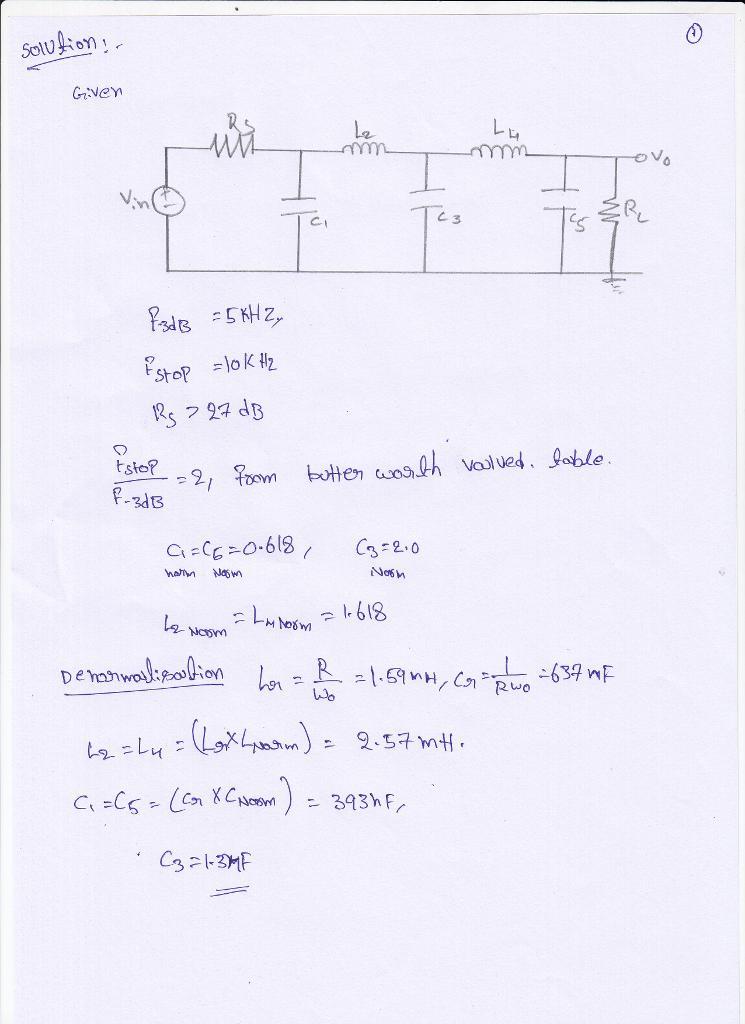 ①
Solution:-
Given
Rs L2 L4
Vin + - C1 C3 C5 RL Vo
f-3dB = 5KHz,
Fstop = 10KHz
Rs > 27 dB
Fstop / F-3dB = 2, from butter worth valved. table.
C1 = C5 = 0.618, C3 = 2.0
norm Norm Norm
L2 Norm = L4 Norm = 1.618
Denormalisation Lr = R / W0 = 1.59mH, Cr = 1 / RW0 = 637 nF
L2 = L4 = (Lr X LNorm) = 2.57mH.
C1 = C5 = (Cr X CNorm) = 393nF,
C3 = 1.3MF